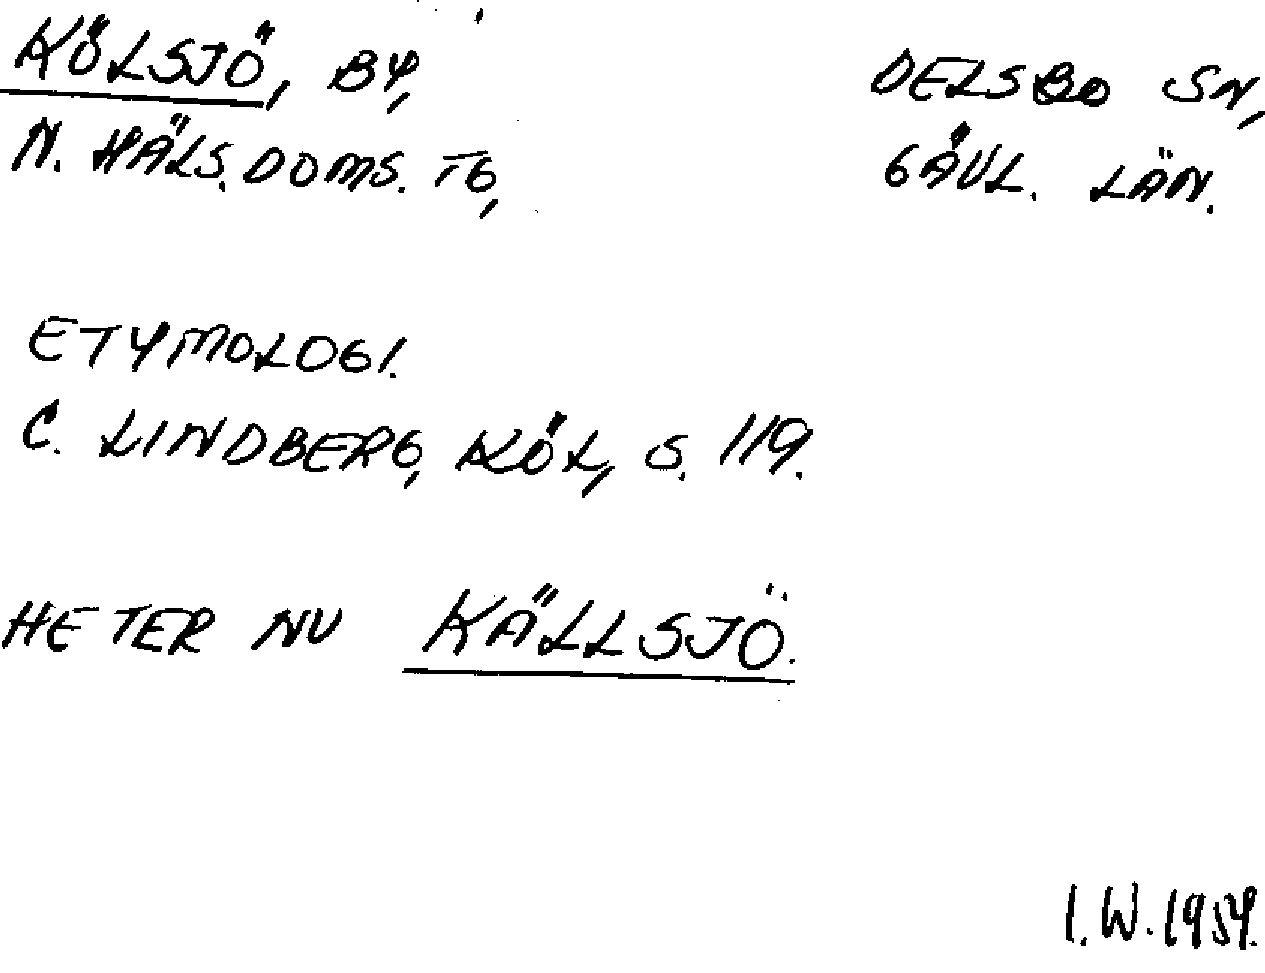 KÖLSJÖ, BY, DELSBO SN,
N. HÄLS. DOMS. TG, GÄVL. LÄN.
ETYMOLOGI.
C. LINDBERG, KÖL, S. 119.
HETER NU KÄLLSJÖ.
I. W. 1959.